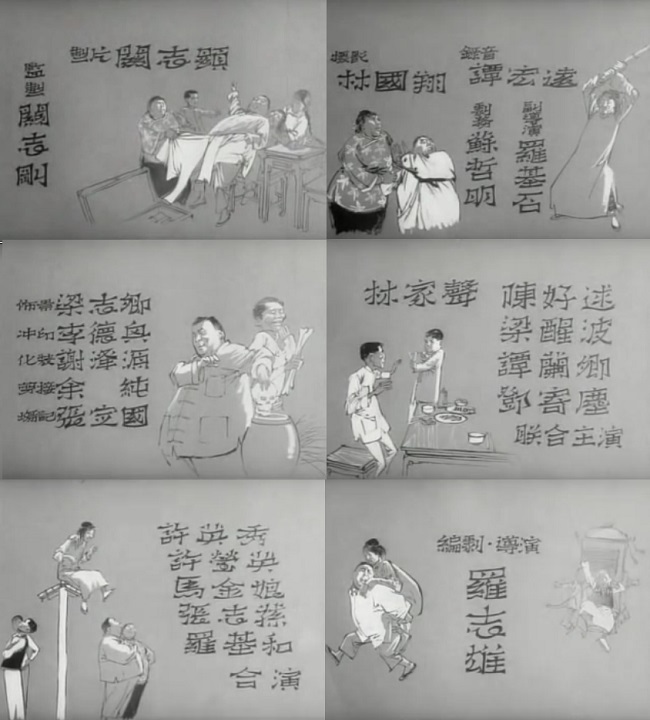 製片 關志顯
監製 關志剛
攝影 林國翔
錄音 譚宏遠
劇務 蘇哲明
副導演 羅基石
佈景 梁志卿
冲印 李德
化裝 謝澤源
剪接 余純
場記 張定國
林家聲
陳好逑
梁醒波
譚蘭卿
鄧寄塵
聯合主演
許英秀
許瑩英
馬金娘
張志蓀
羅基和
合演
編劇·導演
羅志雄